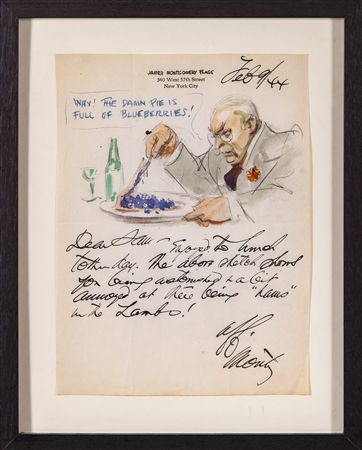 JAMES MONTGOMERY FLAGG
340 West 57th Street
New York City
Feb 9/44
WHY! THE DAMN PIE IS
FULL OF BLUEBERRIES!
Dear
to lunch
t'other day. The above sketch shows
you being astonished & a bit
annoyed at there being "hams"
in the Lambs!
aff.
Monty